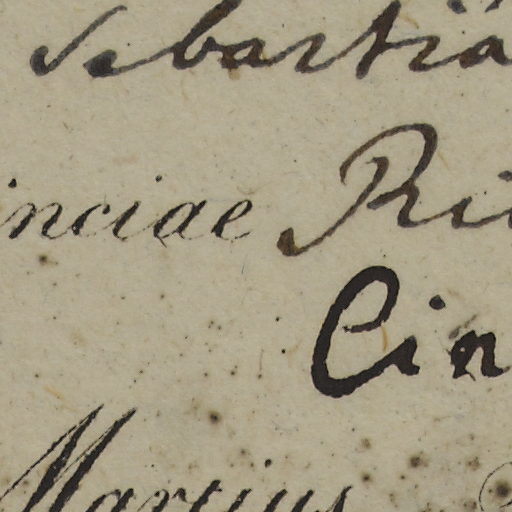 Sebastiã
inciae Ri
Cin
Martius